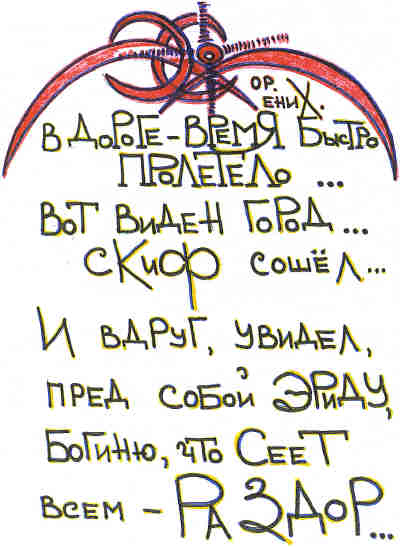 ОР.
ЕНИХ.
В ДОРОГЕ - ВРЕМЯ БЫСТРО
ПРОЛЕТЕЛО ...
ВОТ ВИДЕН ГОРОД...
СКИФ СОШЁЛ...
И ВДРУГ, УВИДЕЛ,
ПРЕД СОБОЙ ЭРИДУ,
БОГИНЮ, ЧТО СЕЕТ
ВСЕМ - РАЗДОР...